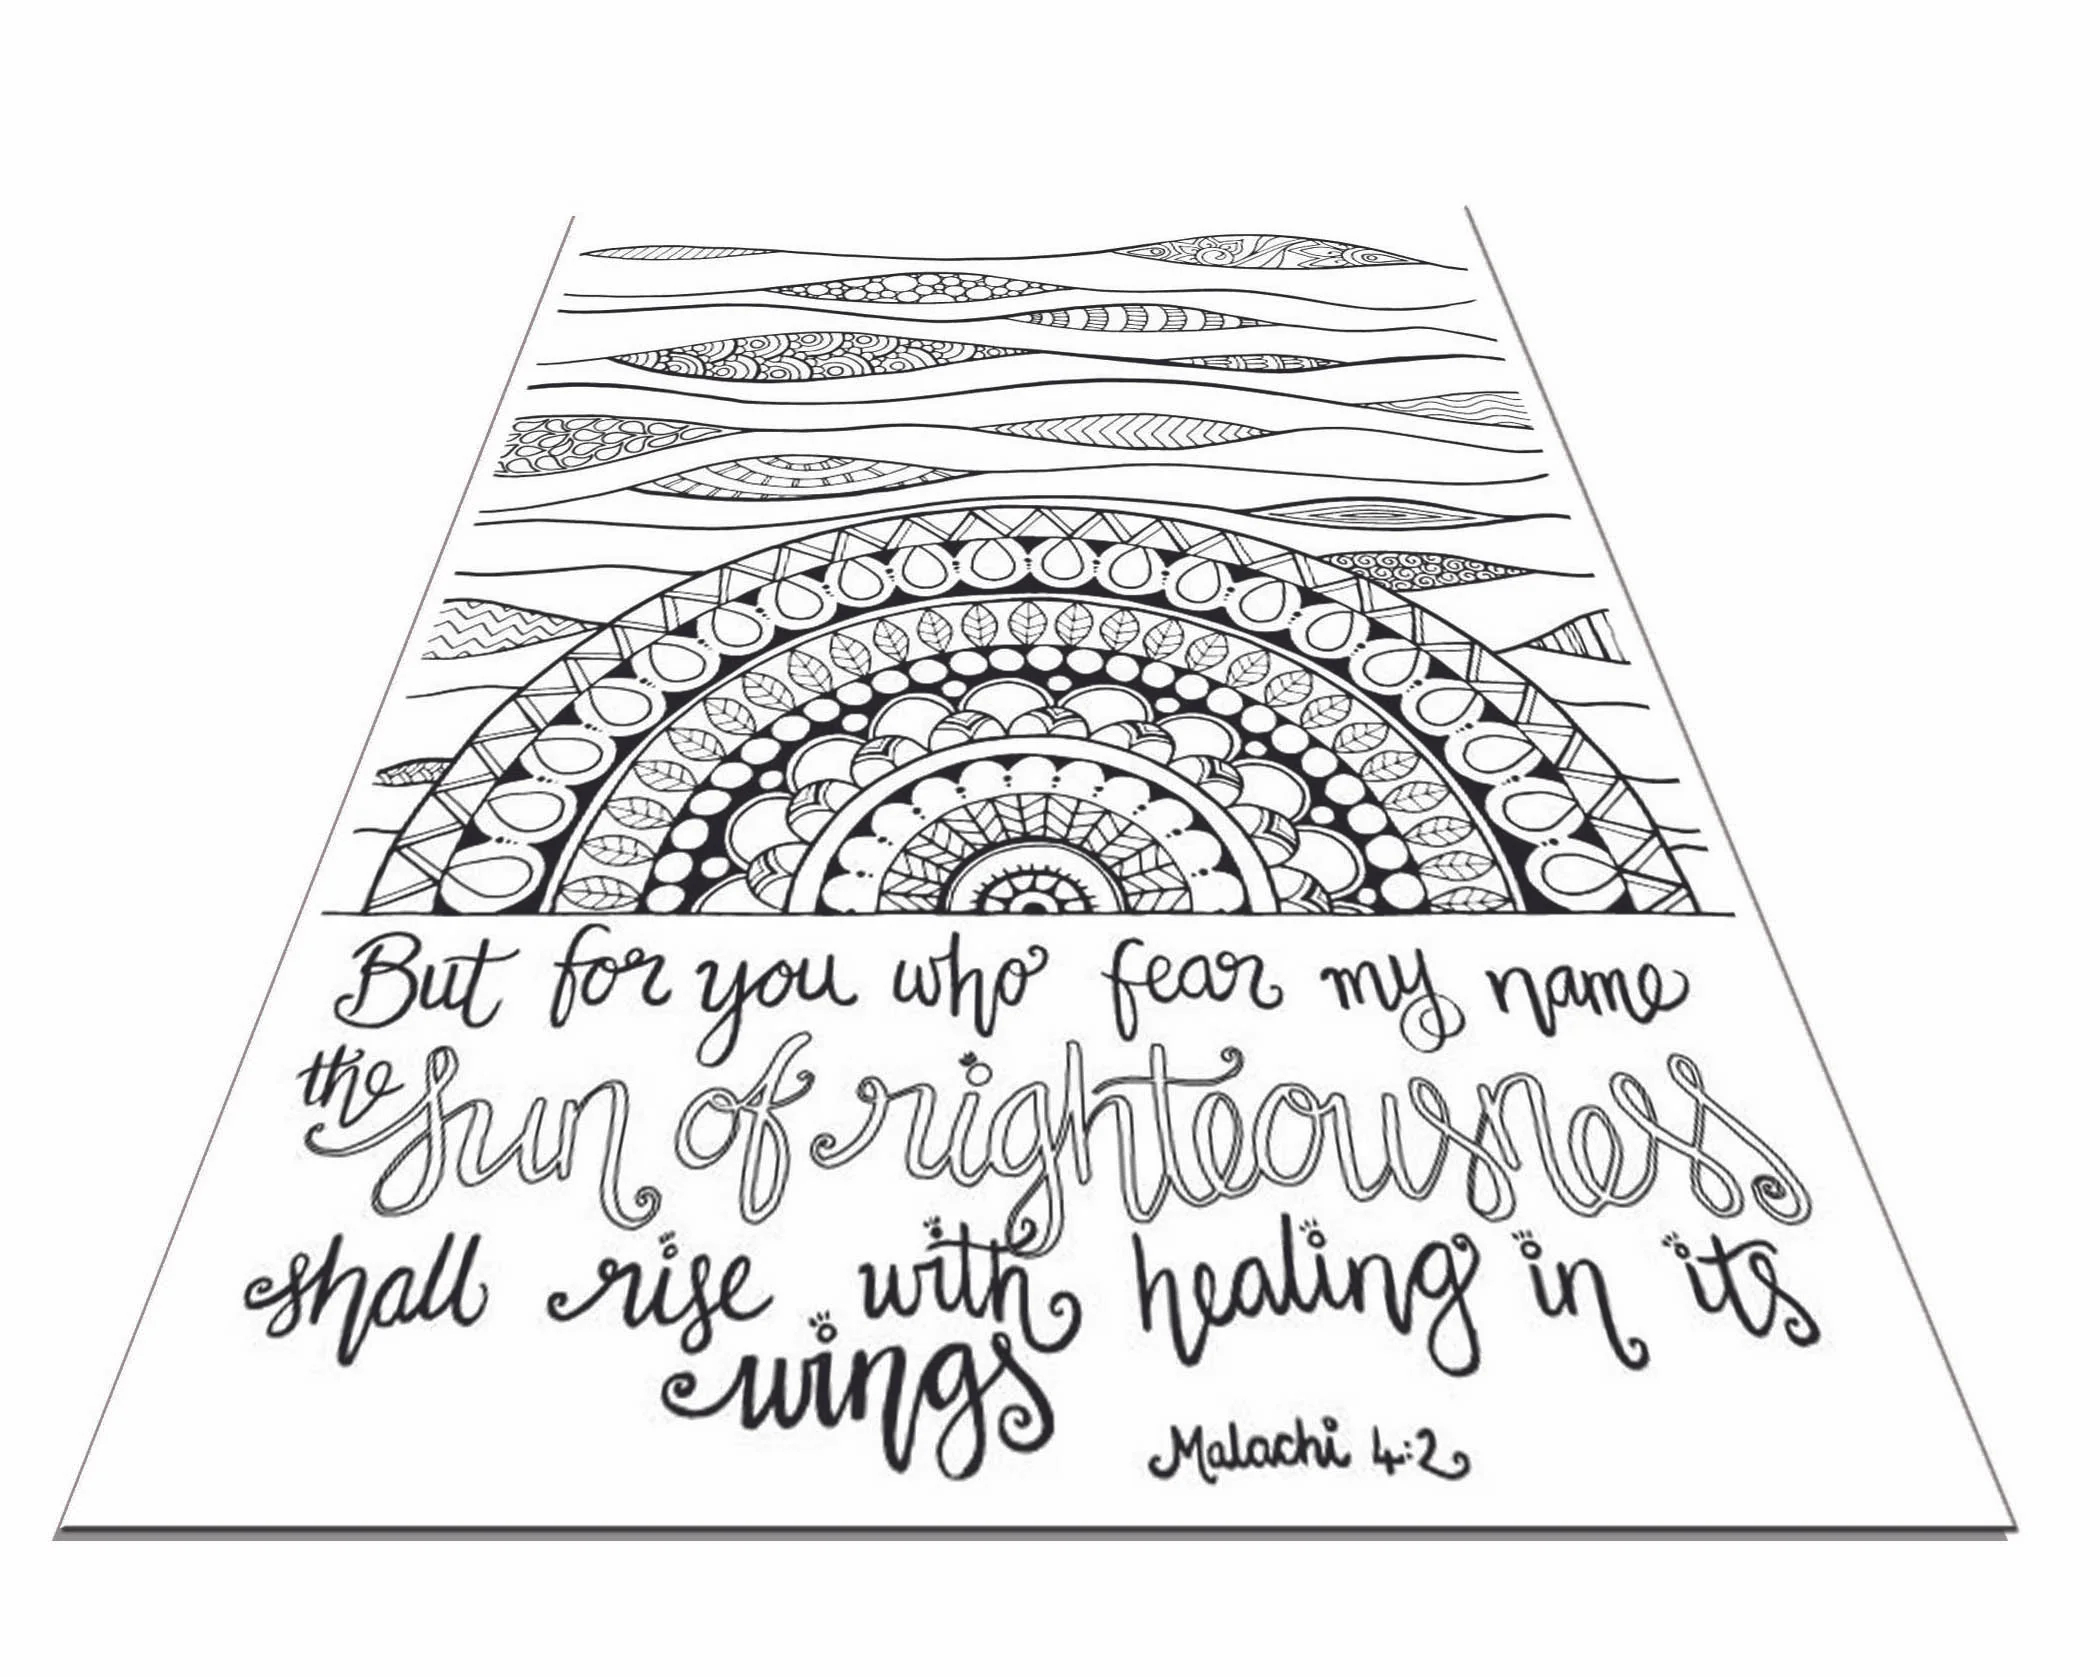 But for you who fear my name
the Sun of righteousness
shall rise with healing in its
wings
Malachi 4:2